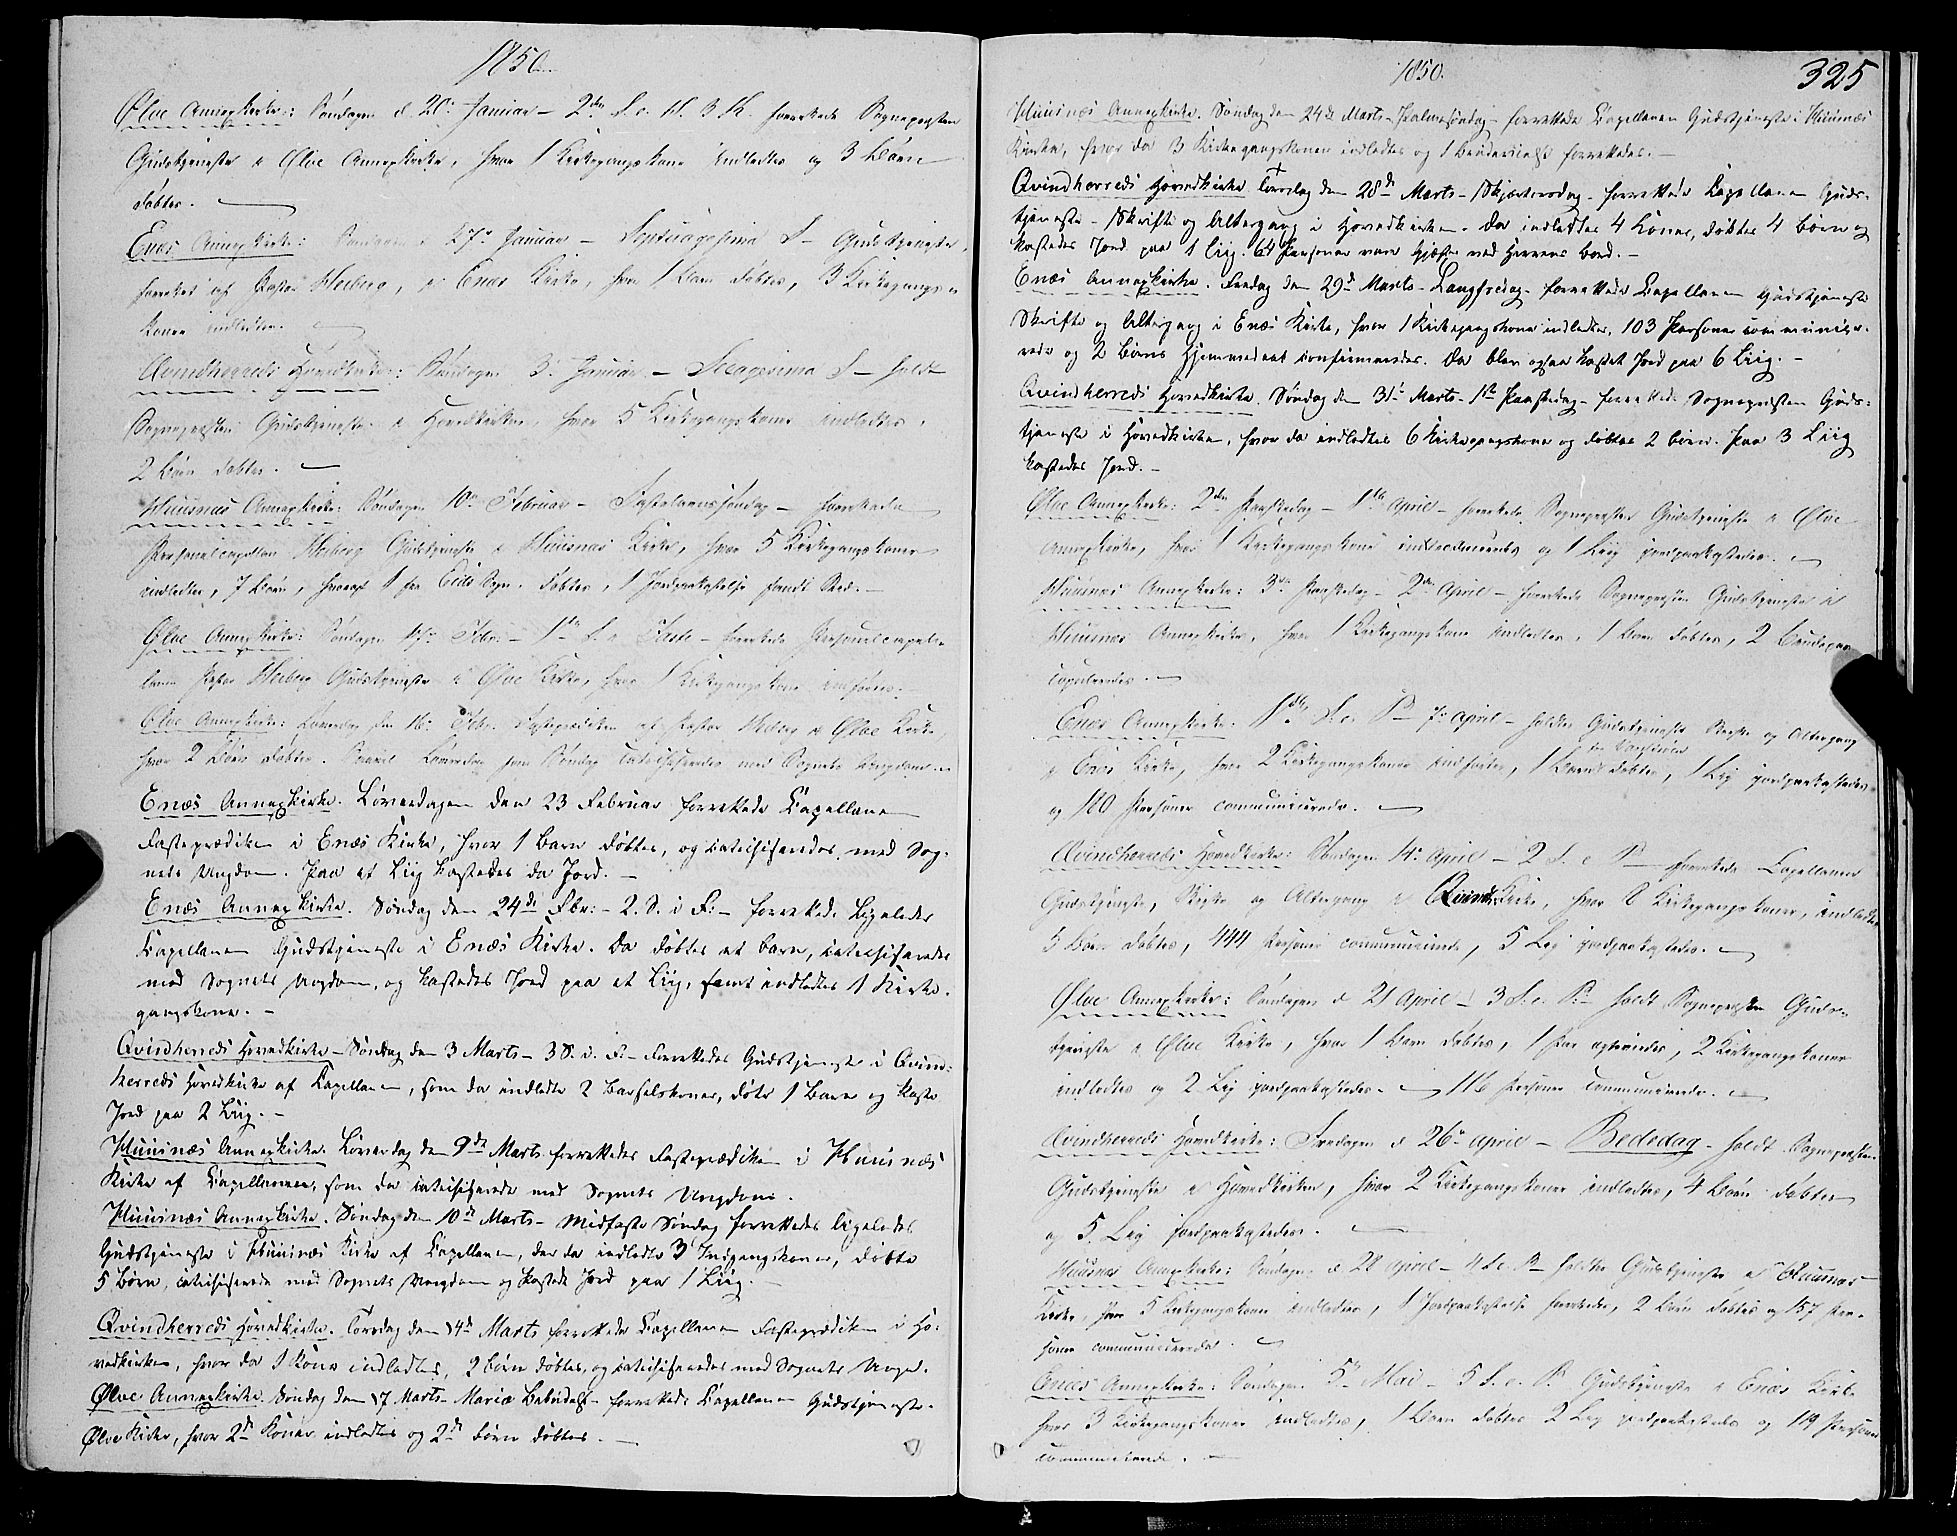 1850.
Ølve Annexkirke: Søndagen d. 20de Januar – 2den S. e. H. 3 K. forrettede Sognepresten
Gudstjeneste i Ølve Annexkirke, hvor 1 Kirkegangskone indledtes og 3 Børn
døbtes. –
Enæs Annexkirke: Søndagen d. 27de Januar – Septuagesima S – Gudstjeneste,
forrettet af Pastor Heiberg, i Enæs Kirke, hvor 1 Barn døbtes, 3 Kirkegangs-
koner indledtes.
Qvindherreds Hovedkirke: Søndagen 3. Januar – Sexagesima S – holdt
Sognepresten Gudstjeneste i Hovedkirken, hvor 5 Kirkegangskoner indledtes,
2 Børn døbtes. –
Huusnæs Annexkirke: Søndagen 10de Februar – Fastelavnssøndag – forrettede
Personelcapellan Heiberg Gudstjeneste i Huusnæs Kirke, hvor 5 Kirkegangskoner
indledtes, 7 Børn, hvoraf 1 fra Eids Sogn, døbtes, 1 Jordpaakastelse fandt Sted. –
Ølve Annexkirke: Søndagen Febr. – 1ste S. i Faste – forrettede Personelcapel-
lanen Pastor Heiberg Gudstjeneste i Ølve Kirke, hvor 1 Kirkegangskone indførtes. –
Ølve Annexkirke: Løverdag den 16de Febr. Fasteprædiken af Pastor Heiberg i Ølve Kirke,
hvor 2 Børn døbtes. Saavel Løverdag som Søndag catechiseredes med Sognets Ungdom. –
Enæs Annexkirke. Løverdagen den 23 Februar forrettede Capellanen
Fasteprædiken i Enæs Kirke, hvor 1 Barn døbtes, og catechiseredes med Sog-
nets Ungdom. Paa et Liig kastedes da Jord. –
Enæs Annexkirke. Søndag den 24de Fbr: – 2. S. i F: – forrettede ligeledes
Capellanen Gudstjeneste i Enæs Kirke. Da døbtes et Barn, catechiseredes
med Sognets Ungdom, og kastedes Jord paa et Liig, samt indledtes 1 Kirke-
gangskone. –
Qvindherreds Hovedkirke – Søndag den 3 Marts – 3 S. i. F. – forrettedes Gudstjeneste i Qvind-
herreds Hovedkirke af Capellanen, som da indledte 2 Barselskoner, døbte 1 Barn og kaste
Jord paa 2 Liig. –
Huusnæs Annexkirke. Løverdag den 9de Marts forrettedes Fasteprædiken i Huusnæs
Kirke af Capellanen, som da catechiserede med Sognets Ungdom.
Huusnæs Annexkirke. Søndag den 10de Marts – Midfaste Søndag forrettedes ligeledes
Gudstjeneste i Huusnæs Kirke af Capellanen, der da indledte 3 Indgangskoner, døbte
5 Børn, catechiserede med Sognets Ungdom og kastede Jord paa 1 Liig. –
Qvindherreds Hovedkirke. Torsdag den 14de Marts forrettede Capellanen Fasteprædiken i Ho-
vedkirken, hvor da 1 Kone indledtes, 2 Børn døbtes, og catechiseredes med Sognets Ungd.
Ølve Annexkirke. Søndag den 17 Marts – Mariæ Bebudelse – forrettede Capellanen Gudstjeneste i
Ølve Kirke, hvor 2de Koner indledtes og 2de Børn døbtes. –
1850.
325
Huusnæs Annexkirke. Søndag den 24de Marts – Palmesøndag – forrettede Capellanen Gudstjeneste i Huusnæs
Kirke, hvor da 3 Kirkegangskoner indledtes og 1 Brudevielse forrettedes. –
Qvindherreds Hovedkirke Torsdag den 28de Marts – Skjærtorsdag – forrettede Capellanen Guds-
tjeneste – Skrifte og Altergang i Hovedkirken. Da indledtes 4 Koner, døbtes 4 Børn og
kastedes Jord paa 1 Liig. 64 Personer vare Gjæster ved Herrens Bord. –
Enæs Annexkirke. Fredag den 29de Marts – Langfredag – forrettede Capellanen Gudstjeneste
Skrifte og Altergang i Enæs Kirke, hvor 1 Kirkegangskone indledtes, 103 Personer communice-
rede og 2 Børns Hjemmedaab confirmeredes. Da blev ogsaa kastet Jord paa 6 Liig. –
Qvindherreds Hovedkirke. Søndag den 31te Marts – 1ste Paaskedag – forrettede Sognepresten Guds-
tjeneste i Hovedkirken, hvor da indledtes 6 Kirkegangskoner og døbtes 2 Børn. Paa 3 Liig
kastedes Jord. –
Ølve Annexkirke: 2den Paaskedag – 1ste April – forrettede Sognepresten Gudstjeneste i Ølve
Annexkirke, hvor 1 Kirkegangskone introduceredes og 1 Liig jordpaakastedes. –
Huusnæs Annexkirke: 3de Paaskedag – 2den April – forrettede Sognepresten Gudstjeneste i
Huusnæs Annexkirke, hvor 1 Kirkegangskone indledtes, 1 Barn døbtes, 2 Brudepar
copuleredes. –
Enæs Annexkirke. 1ste S. e. P. 7de April – holdtes Gudstjeneste Skrifte og Altergang
i Enæs Kirke, hvor 2 Kirkegangskoner indførtes, 1 Barns døbtes, 1 Liig jordpaakastedes
og 120 Personer communicerede. –
Qvindherreds Hovedkirke: Søndagen 14de April – 2 S. e. P. – forrettede Capellanen
Gudstjeneste, Skrifte og Altergang i Qvindh. Kirke, hvor 8 Kirkegangskoner, indledtes
5 Børn døbtes, 444 Personer communicerede, 5 Lig jordpaakastedes. –
Ølve Annexkirke: Søndagen d. 21 April – 3 S. e. P. – holdt Sognepresten Guds-
tjeneste i Ølve Kirke, hvor 1 Barn døbtes, 1 Par egteviedes, 2 Kirkegangskoner
indledtes og 2 Lig jordpaakastedes. – 116 Personer communicerede. –
Qvindherreds Hovedkirke: Fredagen d. 26de April – Bededag – holdt Sognepresten
Gudstjeneste i Hovedkirken, hvor 2 Kirkegangskoner indledtes, 4 Børn døbtes
og 5. Lig jordpaakastedes. –
Huusnæs Annexkirke: Søndagen d. 28 April – 4 S. e. P. holdtes Gudstjeneste i Huusnæs
Kirke, hvor 5 Kirkegangskoner indledtes, 1 Jordpaakastelse forrettedes, 2 Børn døbtes og 157 Per-
soner communicerede. –
Enæs Annexkirke: Søndagen 5te Mai – 5 S. e. P. Gudstjeneste i Enæs Kirke
hvor 3 Kirkegangskoner indledtes, 1 Barn døbtes 2 Lig jordpaakastedes og 119 Personer
communicerede. –